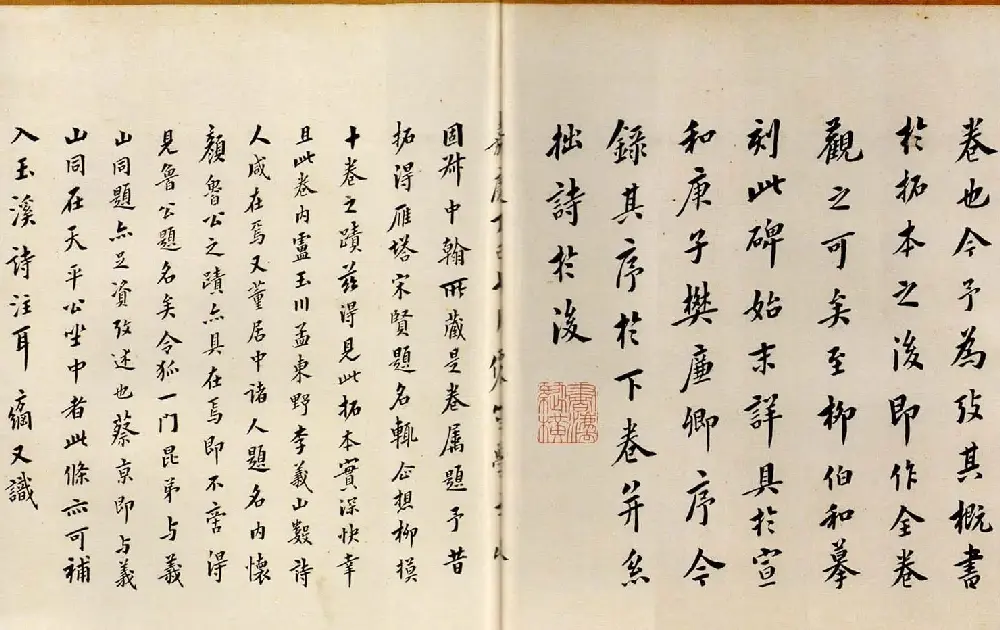 卷也今予為攷其概書
於拓本之後即作全卷
觀之可矣至柳伯和摹
刻此碑始末詳具於宣
和庚子樊廉卿序今
錄其序於下卷并系
拙詩於後
固叔中翰所藏是卷属題予昔
拓得雁塔宋賢題名輒企想柳摸
十卷之蹟茲得見此拓本實深快幸
且此卷內盧玉川孟東野李義山數詩
人咸在焉又董居中諸人題名內懷
顏魯公之蹟亦具在焉即不啻得
見魯公題名矣令狐一门昆弟与義
山同題亦足資攷述也蔡京即与義
山同在天平公坐中者此條亦可補
入玉溪诗注耳 綱又識